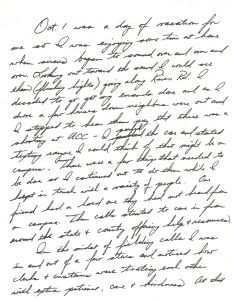 Oct. 1 was a day of vacation for
me so I was enjoying some time at home
when sirens began to sound over and over and
over. Looking out toward the sound I could see
them (flashing lights) going along River Rd. I
decided to go get some errands done and as I
drove a few blocks down neighbors were out and
I stopped to hear them say that there was a
shooting at UCC – I the car and started
texting anyone I could think of that might be on
campus. There were a few things that needed to
be done so I continued out to do them while I
kept in touch with a variety of people. One
friend had a loved one they had not heard from
on campus. Then calls started to come in from
around the state & county offering help & resources.
In the midst of fielding calls I was
in and out of a few stores and noticed how
clerks & customers were treating each other
with extra patience, care & kindness. At this